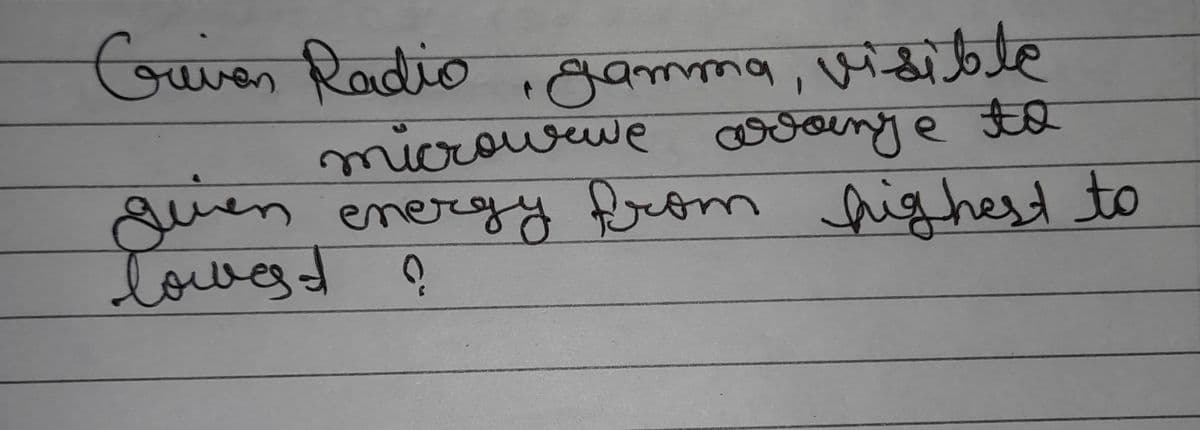 Given Radio , gamma, visible
microwewe arrange to
given energy from highest to
lowest ?